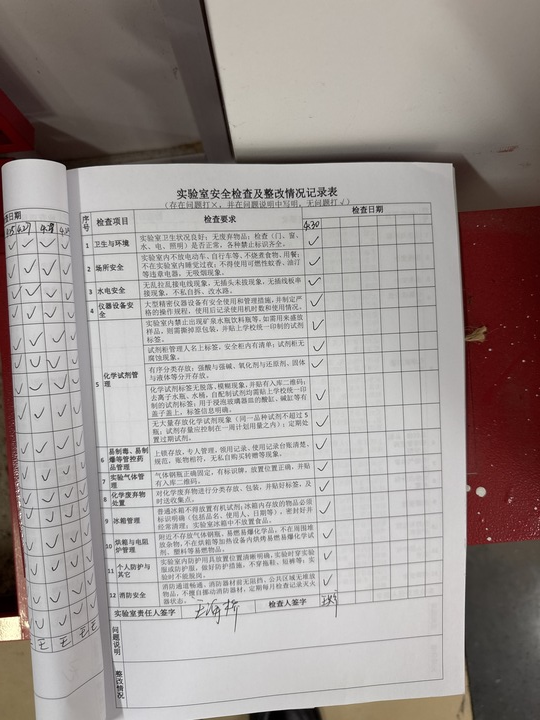 实验室安全检查及整改情况记录表
（存在问题打×，并在问题说明中写明，无问题打√）
序号 检查项目 检查要求 检查日期
4.30
1 卫生与环境 实验室卫生状况良好；无废弃物品；检查（门、窗、
水、电、照明）是否正常，各种禁止标识齐全。 √
2 场所安全 实验室内不放电动车、自行车等、不烧煮食物、用餐；
不在实验室内睡觉过夜；不得使用可燃性蚊香、油汀
等违章电器，无吸烟现象。 √
3 水电安全 无乱拉乱接电线现象，无插头未拔现象，无插线板串
接现象，不私自拆、改水路。 √
4 仪器设备安全 大型精密仪器设备有安全使用和管理措施，并制定严
格的操作规程，使用后记录使用机时数和使用情况。 √
5 化学试剂管理 实验室内禁止出现矿泉水瓶饮料瓶等。如需用来盛放
样品，则需撕掉原包装，并贴上学校统一印制的试剂
标签。 √
试剂柜管理人名上标签，安全柜内有清单；试剂柜无
腐蚀现象。 √
有序分类存放；强酸与强碱、氧化剂与还原剂、固体
与液体等分开存放。 √
化学试剂标签无脱落、模糊现象，并贴有入库二维码；
去离子水瓶、水桶，自配制试剂均需贴上学校统一印
制的试剂标签；用于浸泡玻璃器皿的酸缸、碱缸等有
盖子盖上，标签信息明确。 √
无大量存放化学试剂现象（同一品种试剂不超过5
瓶；试剂存量应控制在一周计划用量之内）；定期处
置过期试剂。 √
6 易制毒、易制爆等管控药品管理 上锁存放，专人管理，领用记录、使用记录台账清楚、
规范，账物相符，无私自购买转赠等现象。 √
7 实验气体管理 气体钢瓶正确固定，有标识牌，放置位置正确，并贴
有入库二维码。 √
8 化学废弃物处置 对化学废弃物进行分类存放、包装，并贴好标签，及
时送收集点。 √
9 冰箱管理 普通冰箱不得放置有机试剂；冰箱内存放的物品必须
标识明确（包括品名、使用人、日期等），密封好并
经常清理；实验室冰箱中不放置食品。 √
10 烘箱与电阻炉管理 附近不存放气体钢瓶、易燃易爆化学品，不在周围堆
放杂物，不在烘箱等加热设备内烘烤易燃易爆化学试
剂、塑料等易燃物品。 √
11 个人防护与其它 实验室内防护用具放置位置清晰明确，实验时穿实验
服或防护服，做好防护措施，不穿拖鞋、短裤等；实
验时不能脱岗。 √
12 消防安全 消防通道畅通、消防器材前无阻挡、公共区域无堆放
物品，不擅自挪动消防器材，定期每月检查记录灭火
器状态。 √
实验室责任人签字 检查人签字
问题说明
整改情况